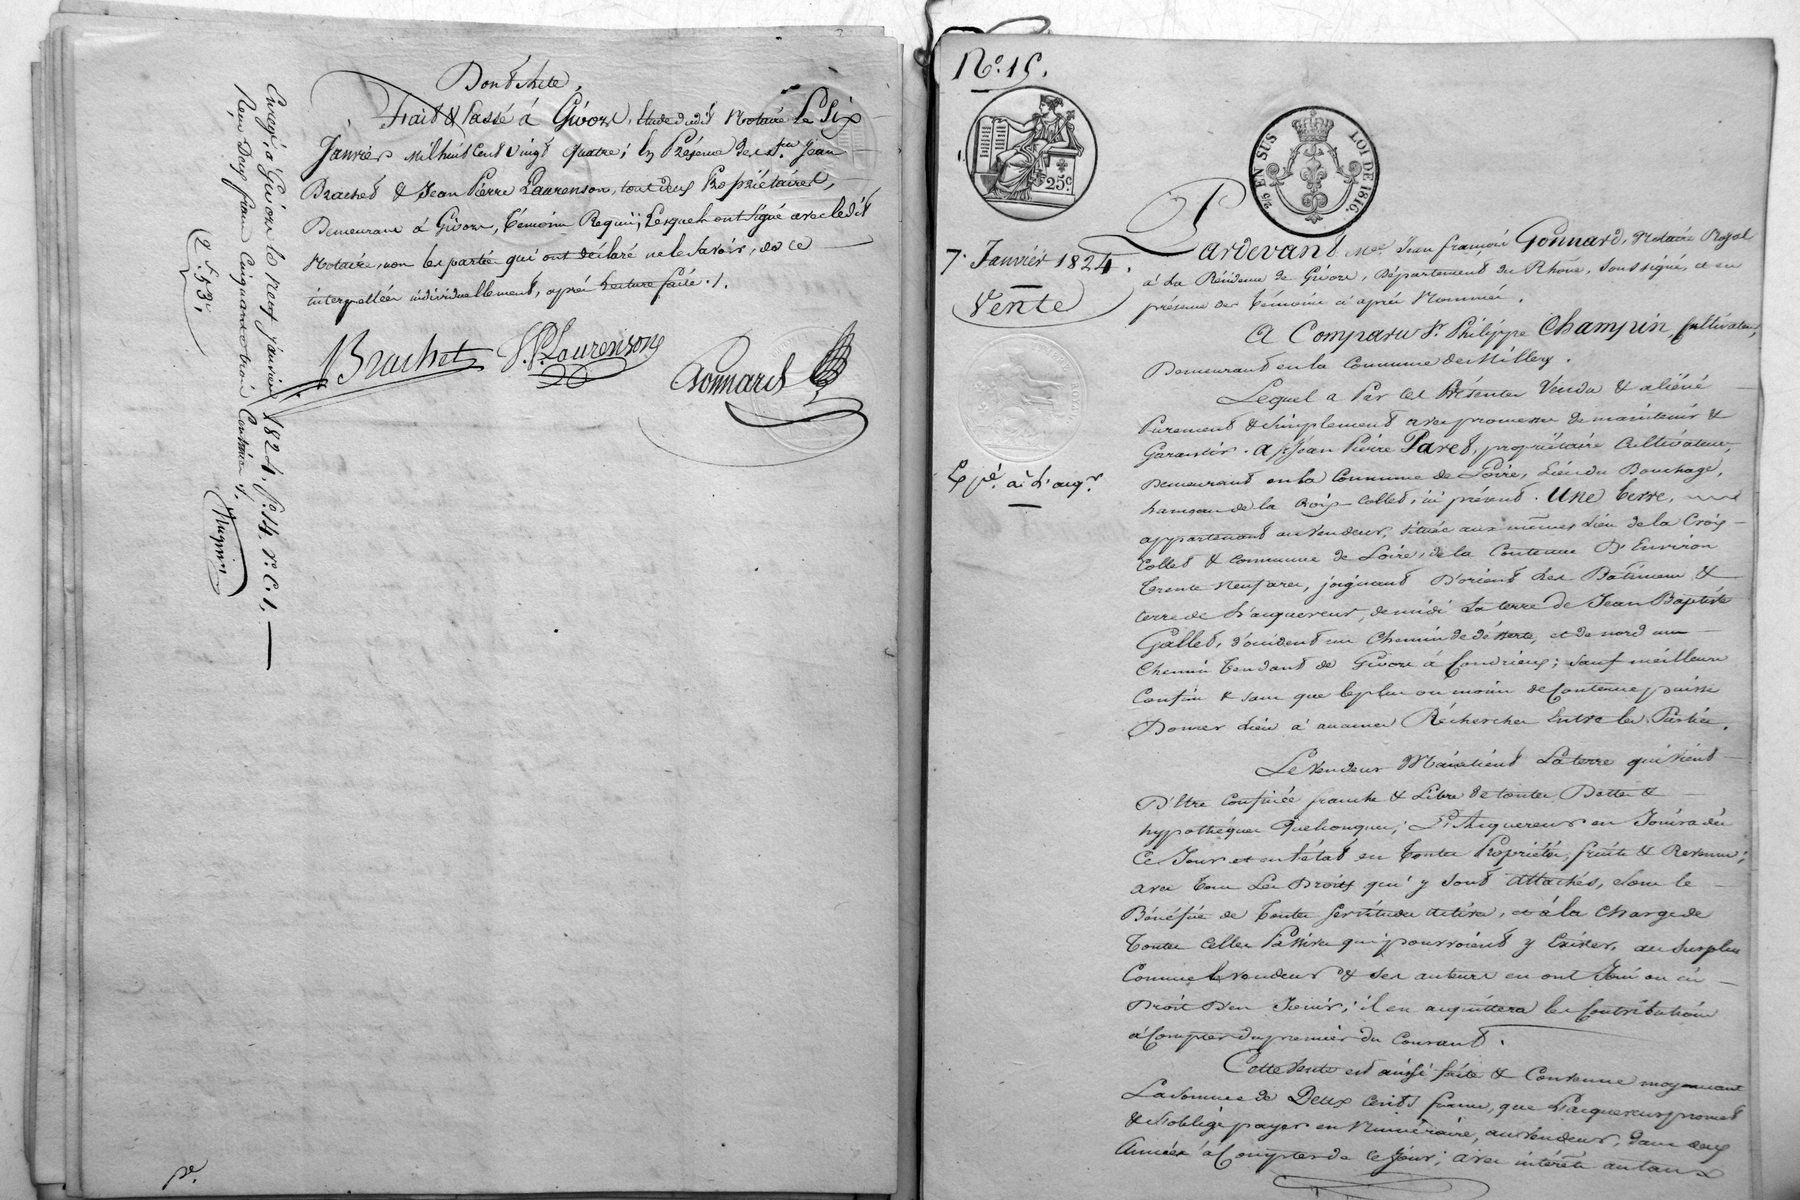 Dont Acte,
Fait & Passé à Givors, Etude dudit Notaire Le Six
Janvier Mil huit Cent vingt quatre; En Présence des Srs. Jean
Brachet & Jean Pierre Laurenson, tout deux Propriétaires,
Demeurans à Givors, Témoins Requis; Lesquels ont Signé avec ledit
Notaire, non les parties qui ont déclaré ne le Savoir, de ce
interpellées individuellement, après Lecture faite ./.
Brachet J. P. Laurenson
Gonnard
Enregé. à Givors le neuf janvier 1824. fo. 14. ro. C. 1.
Reçu Deux francs Cinquante trois Centimes,
2f. 53c.
No. 15.
25c.
2/0 EN SUS
LOI DE 1816.
7. Janvier 1824.
Vente
Expé. à L'aqr.
Pardevant Me. Jean françois Gonnard, Notaire Royal
à La Résidence de Givors, Département du Rhône, Soussigné, et en
présence des Témoins ci après Nommés.
A Comparu Sr. Philippe Champin, Cultivateur,
Demeurant en la Commune de Millery.
Lequel a Par Ces Présentes Vendu & aliéné
Purement & Simplement avec promesse de maintenir &
Garantir. A Sr. Jean Pierre Paret, propriétaire Cultivateur,
Demeurant en la Commune de Loire, Lieu du Bouchage,
hameau de la Croix Collet, ici présent. Une terre,
appartenant au Vendeur, Située aux mêmes Lieu de la Croix
Collet & Commune de Loire, de la Contenue D'Environ
Trente Neuf ares, joignant D'orient Les Batimens &
terre de L'acquereur, de midi La terre de Jean Baptiste
Gallet, d'occident un Chemin de déserte, et de nord un
Chemin Tendant de Givors à Condrieux; Sauf meilleurs
Confins & sans que le plus ou moins de Contenue puisse
Donner Lieu à aucunes Récherches Entre les Parties.
Le Vendeur Maintient La terre qui vient
D'Etre Confinée franche & Libre de toutes Dettes &
hypothéques Quelconques; L'Acquereur en Jouira dès
Ce Jour et en l'état en Toutes Propriétés, fruits & Revenus;
avec Tous Les Droits qui y sont Attachés, Sous le
Bénéfice de Toutes Servitudes Actives, et à la Charge de
Toutes Celles Passives qui pourroient y Exister, au Surplus
Comme le vendeur & ses auteurs en ont Joui ou eu
Droit D'en Jouir; il en acquittera les Contributions
à Compter du premier du Courant.
Cette Vente est aussi faite & Convenue moyennant
La Somme de Deux Cents francs, que L'acquereur promet
& S'oblige payer en Numéraire, au Vendeur, dans deux
Années à Compter de Ce Jour; avec intérêts au taux